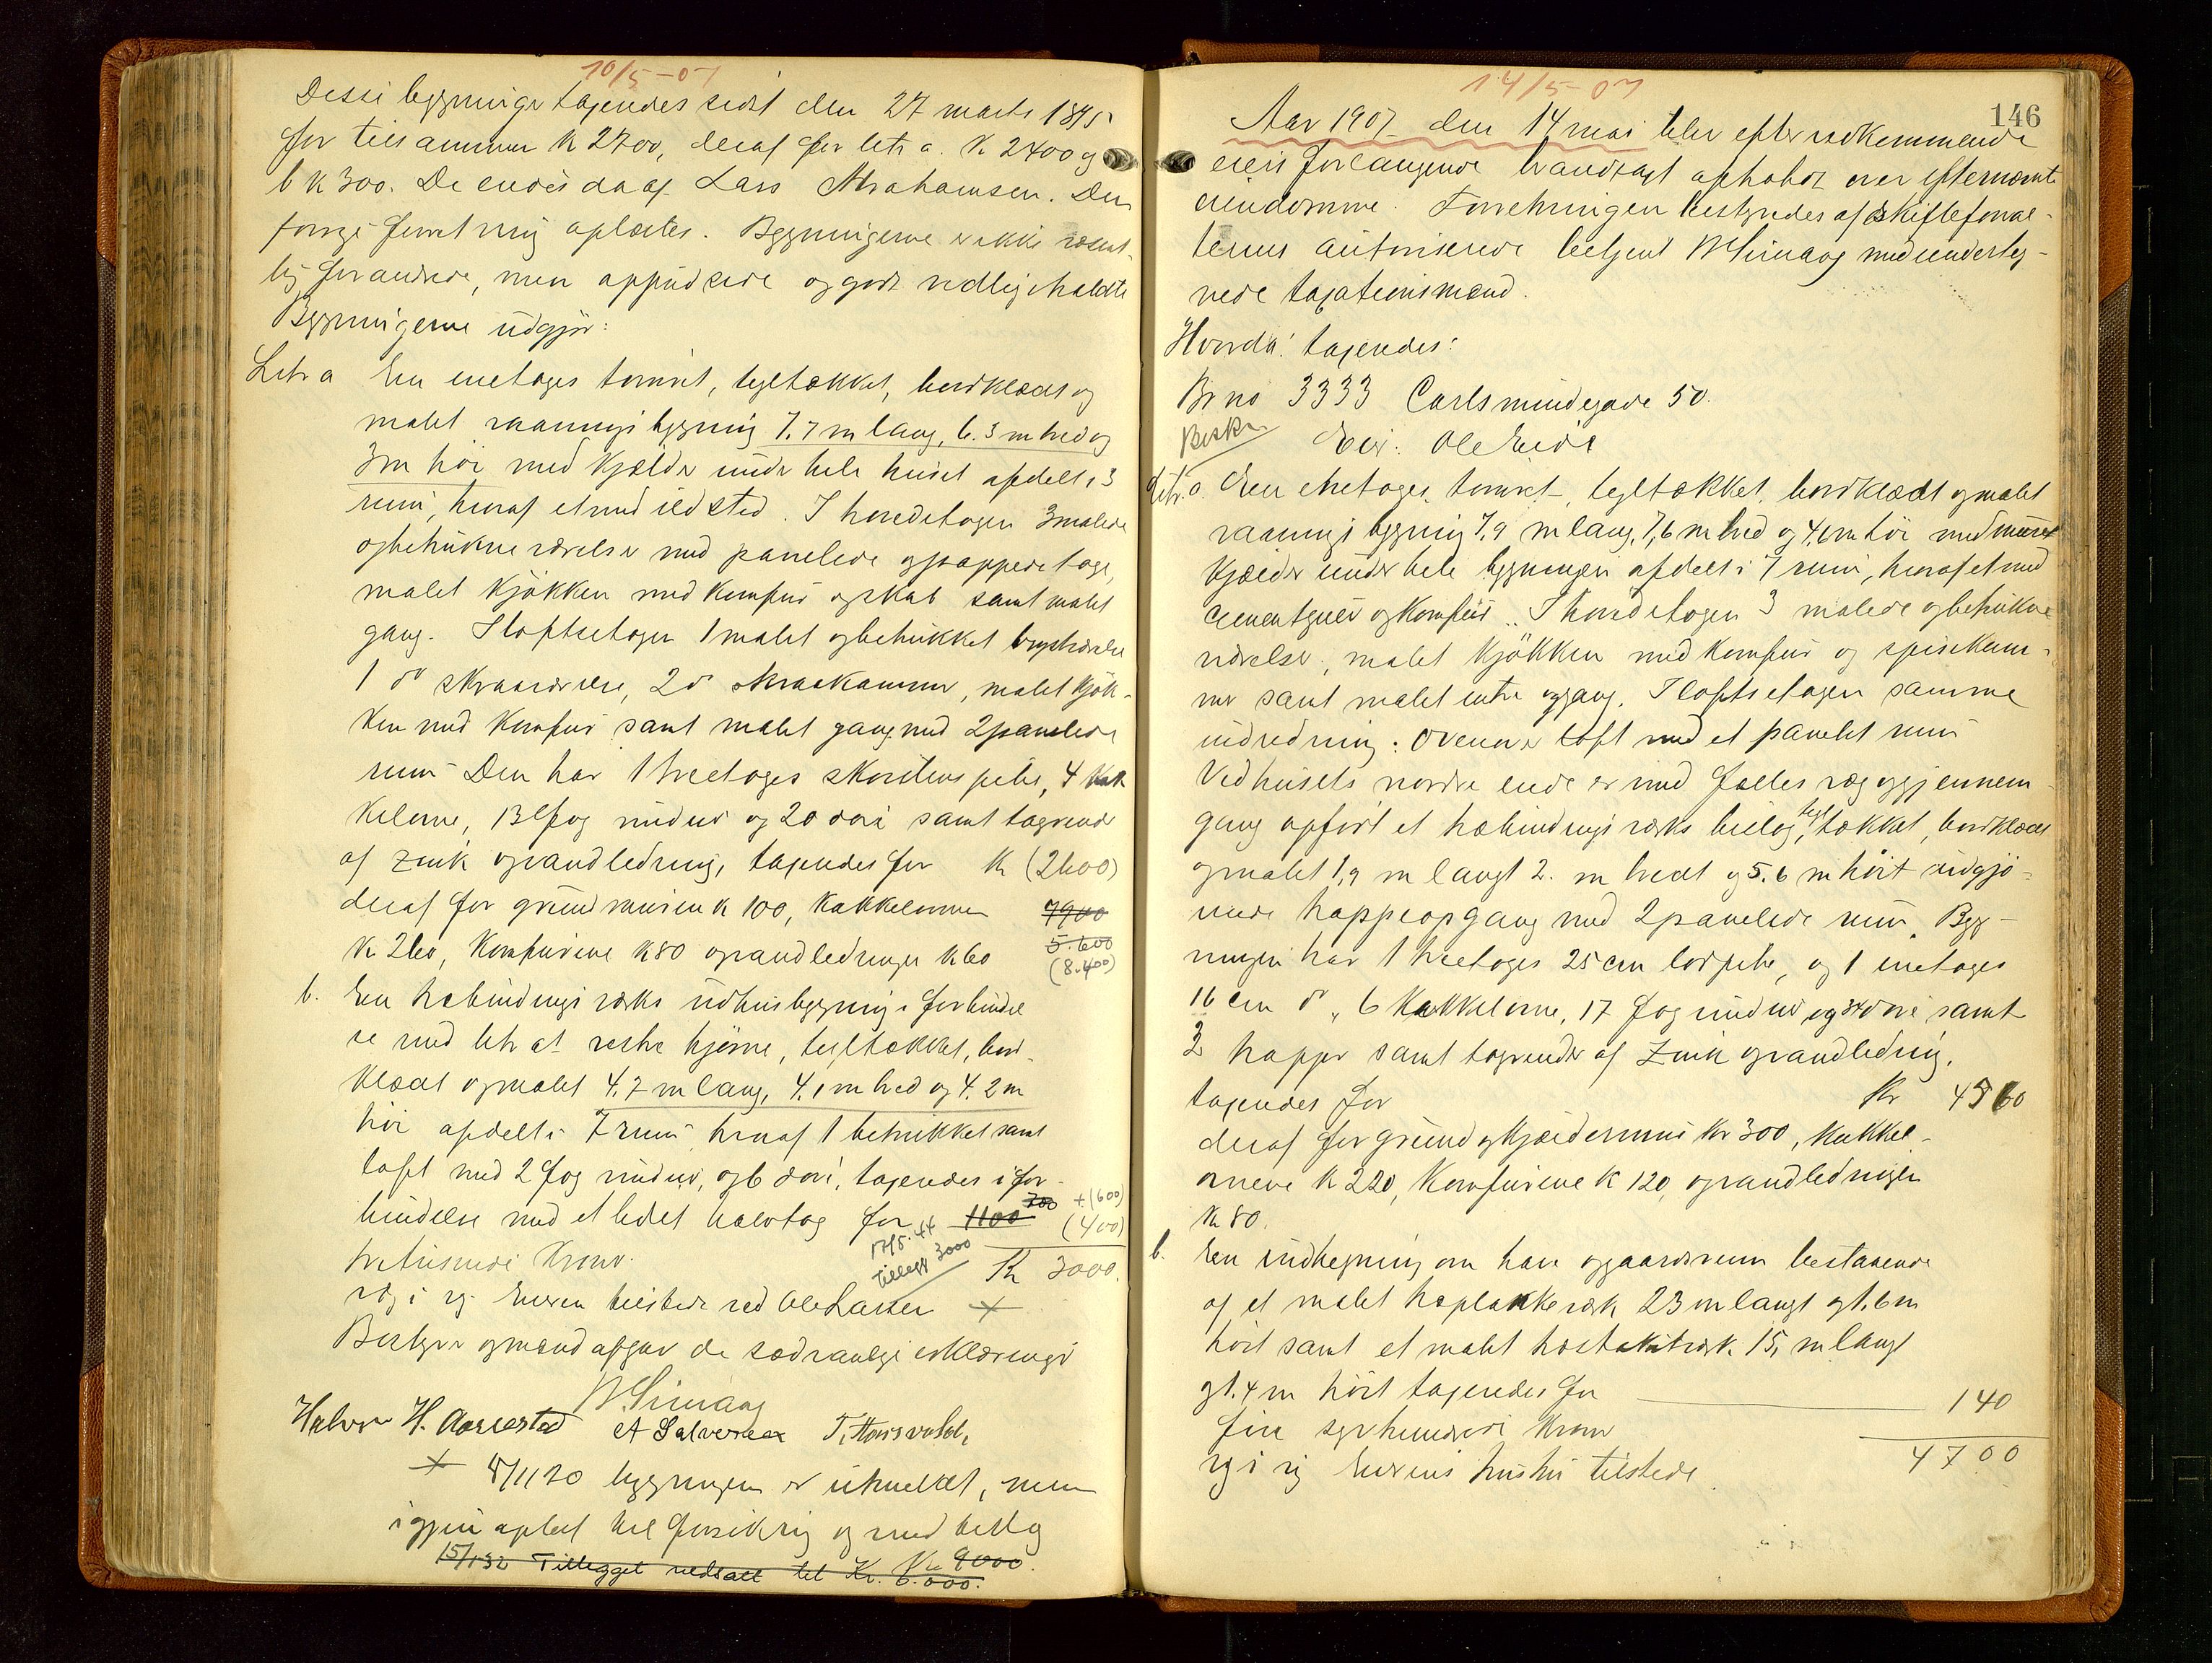 10/5-07
Disse bygninger taxeredes sidst den 27 marts 1895
for tilsammen k 2700, deraf for litr a. K 2400 og
b k 300. De eiedes da af Lars Abrahamsen. Den
forrige forretning oplæstes. Bygningerne er ikke væsent-
lig forandrede, men oppudsede og godt vedligeholdte
Bygningerne udgjør:
Litr a En enetages tømret, tegltækket, bordklædt og
malet vaaningsbygning 7.7 m lang, 6.3 m bred og
3 m høi med Kjelder under hele huset afdelt i 3
rum, hvoraf et med ildsted. I hovedetagen 3 malede
og betrukne værelser med panelede og pappede tage,
malet Kjøkken med Komfur og skab samt malet
gang. I loftsetagen 1 malet og betrukket kvistværelse
1 do skraaværelse, 2 do skraakammer, malet Kjøk-
ken med Komfur samt malet gang med 2 panelede
rum Den har 1 treetages skorstens pibe, 4 Kak
kelovne, 13 fag vinduer og 20 døre samt tagrender
af zink og vandledning, taxeredes for K (2600)
deraf for grundmuren k 100, Kakkelovnene 7900
K 260, Komfurene k 80 og vandledningen k 60 5.600
(8.400)
b. En bebindingsværks udhusbygning i forbindel
se med litr a t vestre hjørne, tegltækket, bord-
klædt og malet 4.7 m lang, 4.1 m bred og 4.2 m
høi afdelt i 7 rum hvoraf 1 betrukket samt
loft med 2 fag vinduer, og 6 døre, taxeredes i for-
bindelse med et lidet halvtag for 1100 700 +(600)
(400)
17/5.44
Tillegg 3000
tretusinde Kroner. K 3000.
væg i væg. Eieren tilstede ved Ole Larsen +
Bestyrer og mænd afgav de sædvanlige erklæringer
Halvor H. Aarrestad A Salvesen
+ 8/11 20 bygningen er utmeldt, men
igjen optat til forsikring og med tillæg
Kr 9000
15/1 32 Tillegget nedsatt til Kr. 6.000.
14/5-07
146
Aar 1907 den 14 mai blev efter vedkommende
eiers forlangende brandtaxt afholdt over efternævnte
eiendomme. Forretningen bestyredes af skifteforval-
terens autoriserede betjent med underteg-
nede taxationsmænd.
Hvorda: taxeredes:
Br no 3333 Carlsmindegade 50.
Beskr.
Eier: Ole Eide
Litr. a. En enetages tømret, tegltækket, bordklædt og malet
vaaningsbygning 7,9 m lang, 7,6 m bred og 4,6 m høi med muret
Kjælder under hele bygningen afdelt i 7 rum, hvoraf et med
cementgulv og komfur. I hovedetagen 3 malede og betrukne
værelser, malet Kjøkken med Komfur og spiskam-
mer samt malet entre og gang. I loftsetagen samme
indredning. Ovenover loft med et panelet rum
Ved husets nordre ende er med fælles væg og gjennem-
gang opført et bebindingsværks bislag, tegltækket, bordklædt
og malet 1,9 m langt 2. m bredt og 5.6 m høit udgjø-
rende trappeopgang med 2 panelede rum. Byg-
ningen har 1 treetages 25 cm løbpibe, og 1 enetages
16 cm do, 6 Kakkelovne, 17 fag vinduer og 34 døre samt
2 trapper samt tagrender af zink og vandledning.
taxeredes for Kr 4560
deraf for grund og Kjældermur Kr 300, Kakkel-
ovnene K 220, Komfurene K 120, og vandledningen
K 80.
b. En indhegning om have og gaardsrum bestaaende
af et malet træplankeværk 23 m langt og 1.6 m
høit samt et malet træstakitværk 15, m langt
og 1.4 m høit taxeredes for 140
fire syvhundrede Kroner 4700
væg i væg Eierens hustru tilstede.